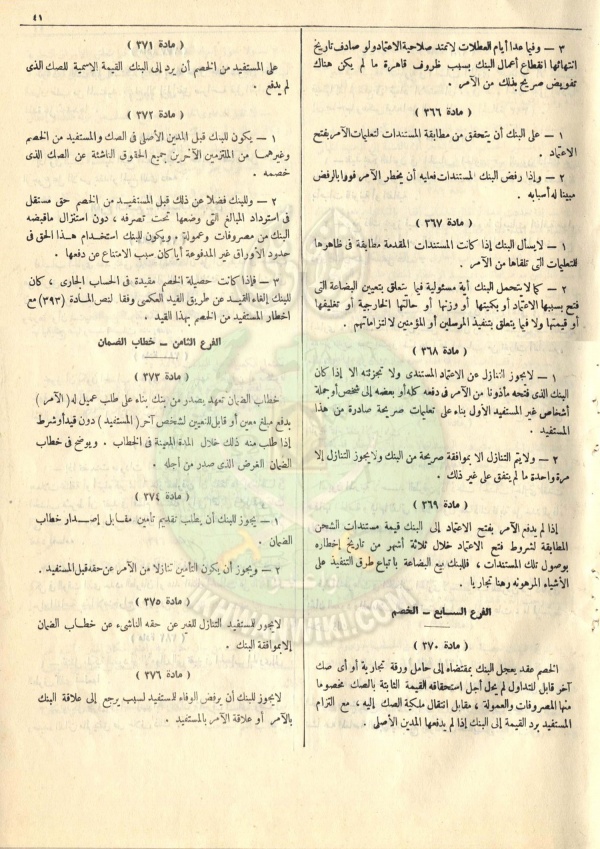 ٤١
٣ — وفيما عدا أيام العطلات لا تمتد صلاحية الاعتماد ولو صادف تاريخ
انتهائها انقطاع أعمال البنك بسبب ظروف قاهرة ما لم يكن هناك
تفويض صريح بذلك من الآمر.
( مادة ٣٦٦ )
١ — على البنك أن يتحقق من مطابقة المستندات لتعليمات الآمر بفتح
الاعتماد.
٢ — وإذا رفض البنك المستندات فعليه أن يخطر الآمر فورا بالرفض
مبينا له أسبابه.
( مادة ٣٦٧ )
١ — لا يسأل البنك إذا كانت المستندات المقدمة مطابقة فى ظاهرها
للتعليمات التى تلقاها من الآمر.
٢ — كما لا يتحمل البنك أية مسئولية فيما يتعلق بتعيين البضاعة التى
فتح بسببها الاعتماد أو بكميتها أو وزنها أو حالتها الخارجية أو تغليفها
أو قيمتها ولا فيما يتعلق بتنفيذ المرسلين أو المؤمنين لالتزاماتهم.
( مادة ٣٦٨ )
١ — لا يجوز التنازل عن الاعتماد المستندى ولا تجزئته الا إذا كان
البنك الذى فتحه مأذونا من الآمر فى دفعه كله أو بعضه إلى شخص أو جملة
أشخاص غير المستفيد الأول بناء على تعليمات صريحة صادرة من هذا
المستفيد.
٢ — ولا يتم التنازل الا بموافقة صريحة من البنك ولا يجوز التنازل إلا
مرة واحدة ما لم يتفق على غير ذلك.
( مادة ٣٦٩ )
إذا لم يدفع الآمر بفتح الاعتماد إلى البنك قيمة مستندات الشحن
المطابقة لشروط فتح الاعتماد خلال ثلاثة أشهر من تاريخ إخطاره
بوصول تلك المستندات، فللبنك بيع البضاعة باتباع طرق التنفيذ على
الأشياء المرهونة رهنا تجاريا.
الفرع السابع — الخصم
( مادة ٣٧٠ )
الخصم عقد يعجل البنك بمقتضاه إلى حامل ورقة تجارية أو أى صك
آخر قابل للتداول لم يحل أجل استحقاقه القيمة الثابتة بالصك مخصوما
منها المصروفات والعمولة، مقابل انتقال ملكية الصك إليه، مع التزام
المستفيد برد القيمة إلى البنك إذا لم يدفعها المدين الأصلى.
( مادة ٣٧١ )
على المستفيد من الخصم أن يرد إلى البنك القيمة الاسمية للصك الذى
لم يدفع.
( مادة ٣٧٢ )
١ — يكون للبنك قبل المدين الأصلى فى الصك والمستفيد من الخصم
وغيرهما من الملتزمين الآخرين جميع الحقوق الناشئة عن الصك الذى
خصمه.
٢ — وللبنك فضلا عن ذلك قبل المستفيد من الخصم حق مستقل
فى استرداد المبالغ التى وضعها تحت تصرفه، دون استنزال ما قبضه
البنك من مصروفات وعمولة. ويكون للبنك استخدام هذا الحق فى
حدود الأوراق غير المدفوعة أيا كان سبب الامتناع عن دفعها.
٣ — فإذا كانت حصيلة الخصم مقيدة فى الحساب الجارى، كان
للبنك إلغاء القيد عن طريق القيد العكسى وفقا لنص المادة (٣٩٣) مع
اخطار المستفيد من الخصم بهذا القيد.
الفرع الثامن — خطاب الضمان
( مادة ٣٧٣ )
خطاب الضمان تعهد يصدر من بنك بناء على طلب عميل له (الآمر)
بدفع مبلغ معين أو قابل للتعيين لشخص آخر (المستفيد) دون قيد أو شرط
إذا طلب منه ذلك خلال المدة المعينة فى الخطاب. ويوضح فى خطاب
الضمان الغرض الذى صدر من أجله.
( مادة ٣٧٤ )
١ — يجوز للبنك أن يطلب تقديم تأمين مقابل إصدار خطاب
الضمان.
٢ — ويجوز أن يكون التأمين تنازلا من الآمر عن حقه قبل المستفيد.
( مادة ٣٧٥ )
لا يجوز للمستفيد التنازل للغير عن حقه الناشىء عن خطاب الضمان
إلا بموافقة البنك.
( مادة ٣٧٦ )
لا يجوز للبنك أن يرفض الوفاء للمستفيد لسبب يرجع إلى علاقة البنك
بالآمر أو علاقة الآمر بالمستفيد.
IKHWANWIKI.COM